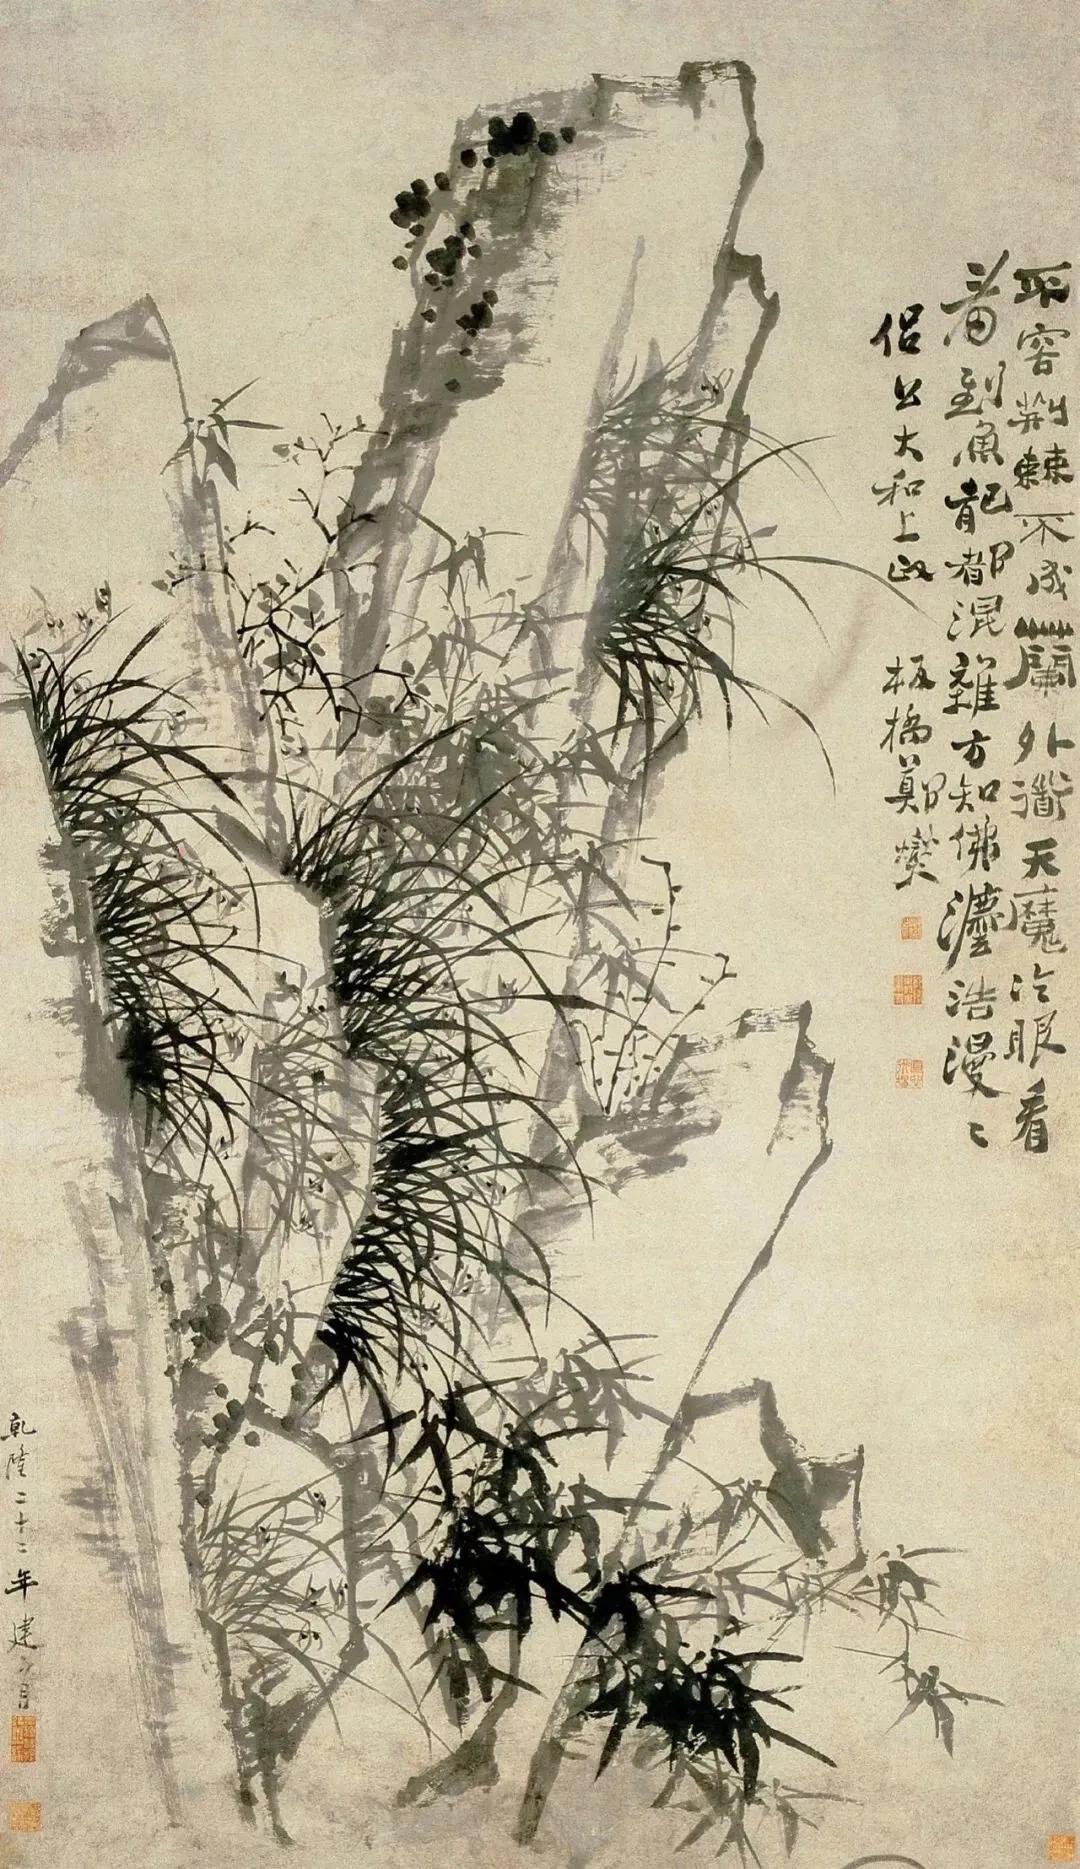 不容荆棘不成蘭外衜天魔冷眼看
看到魚龍都混雜方知佛灋浩漫〻
侣公大和上政 板橋鄭燮
乾隆二十二年建子月